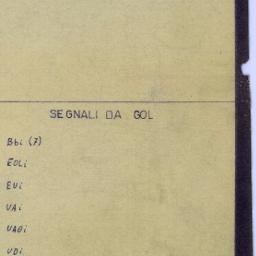 SEGNALI DA GOL
Bbi (7)
EOLi
EUi
UAi
UAOi
UDi